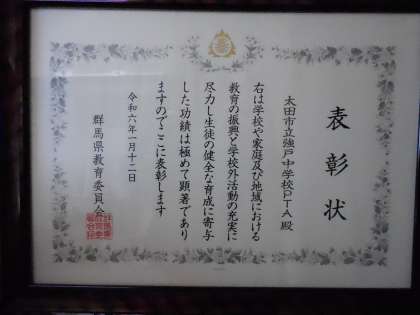 表彰状
太田市立強戸中学校PTA殿
右は学校や家庭及び地域における
教育の振興と学校外活動の充実に
尽力し生徒の健全な育成に寄与
した功績は極めて顕著であり
ますのでここに表彰します
令和六年一月十二日
群馬県教育委員会